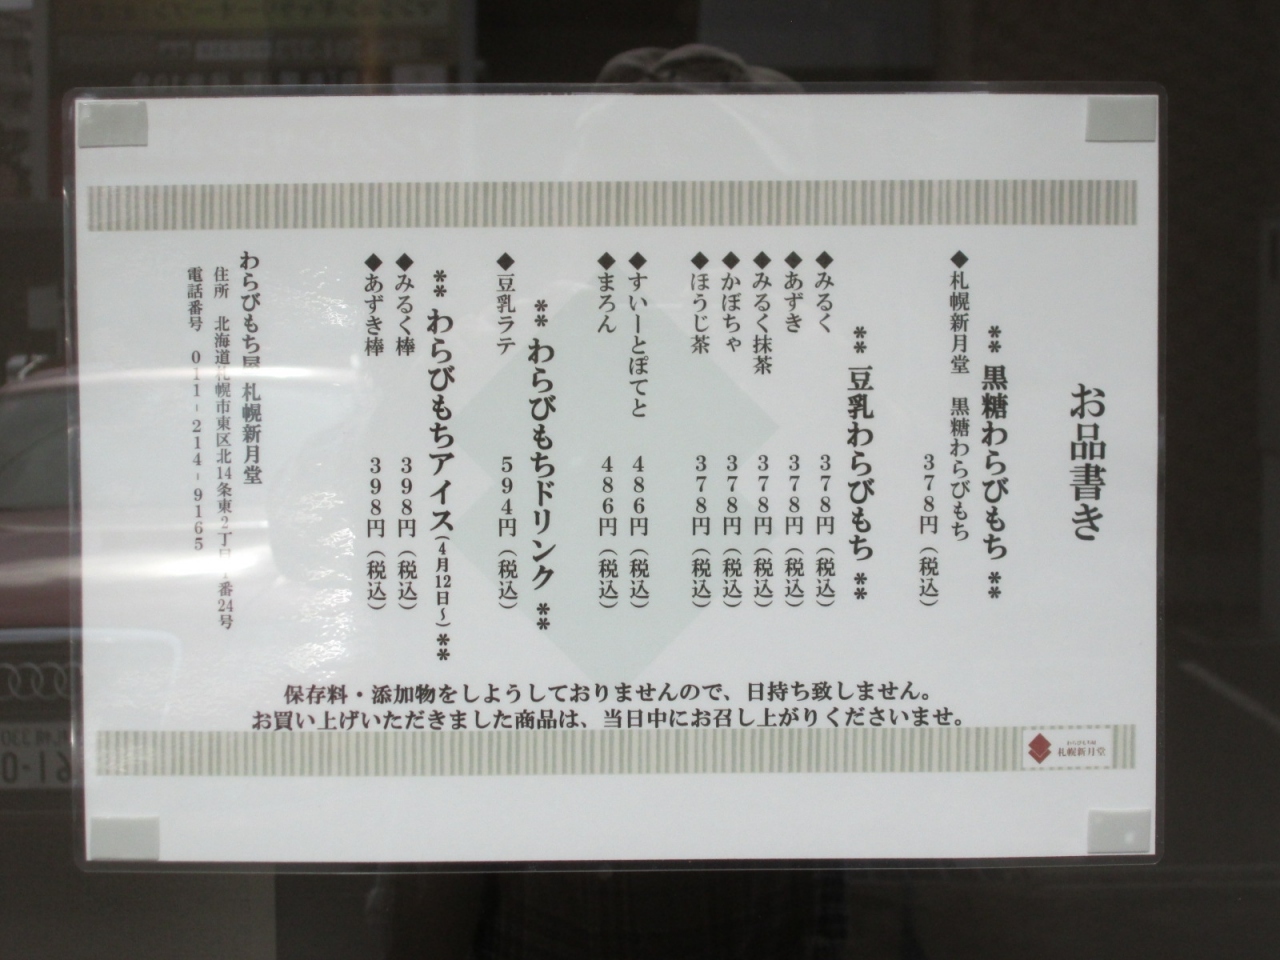 お品書き
** 黒糖わらびもち **
◆札幌新月堂 黒糖わらびもち
378円(税込)
** 豆乳わらびもち **
◆みるく 378円(税込)
◆あずき 378円(税込)
◆みるく抹茶 378円(税込)
◆かぼちゃ 378円(税込)
◆ほうじ茶 378円(税込)
◆すいーとぽてと 486円(税込)
◆まろん 486円(税込)
** わらびもちドリンク **
◆豆乳ラテ 594円(税込)
** わらびもちアイス(4月12日~)**
◆みるく棒 398円(税込)
◆あずき棒 398円(税込)
わらびもち屋 札幌新月堂
住所 北海道札幌市東区北14条東2丁目 番24号
電話番号 011-214-9165
保存料・添加物をしようしておりませんので、日持ち致しません。
お買い上げいただきました商品は、当日中にお召し上がりくださいませ。
わらびもち屋
札幌新月堂